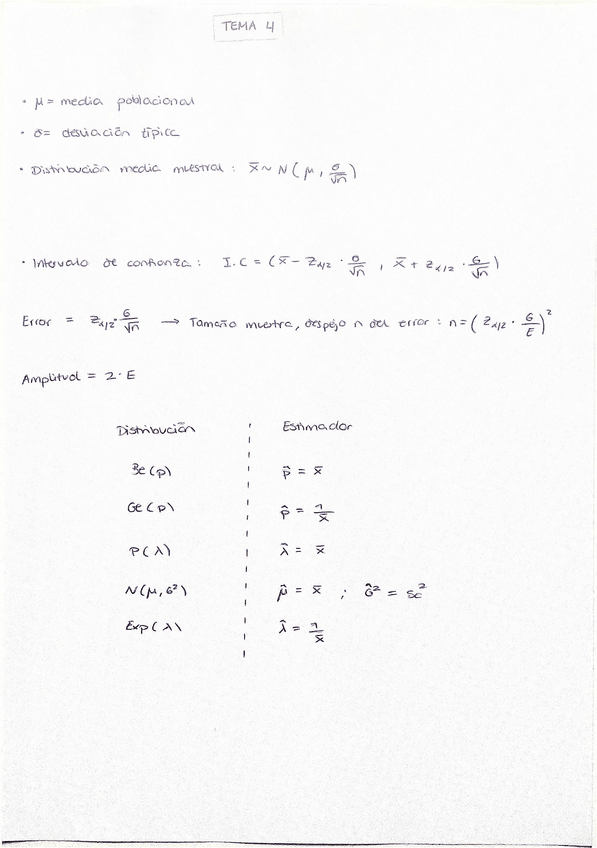 TEMA 4
• μ = media poblacional
• σ = desviación típica
• Distribución media muestral : x̄ ~ N(μ, σ/√n)
• Intervalo de confianza : I.C = (x̄ − z_α/2 · σ/√n , x̄ + z_α/2 · σ/√n)
Error = z_α/2 · σ/√n → Tamaño muestra, despejo n del error : n = (z_α/2 · σ/E)²
Amplitud = 2 · E
Distribución Estimador
Be(p) p̂ = x̄
Ge(p) p̂ = 1/x̄
P(λ) λ̂ = x̄
N(μ, σ²) μ̂ = x̄ ; σ̂² = sc²
Exp(λ) λ̂ = 1/x̄